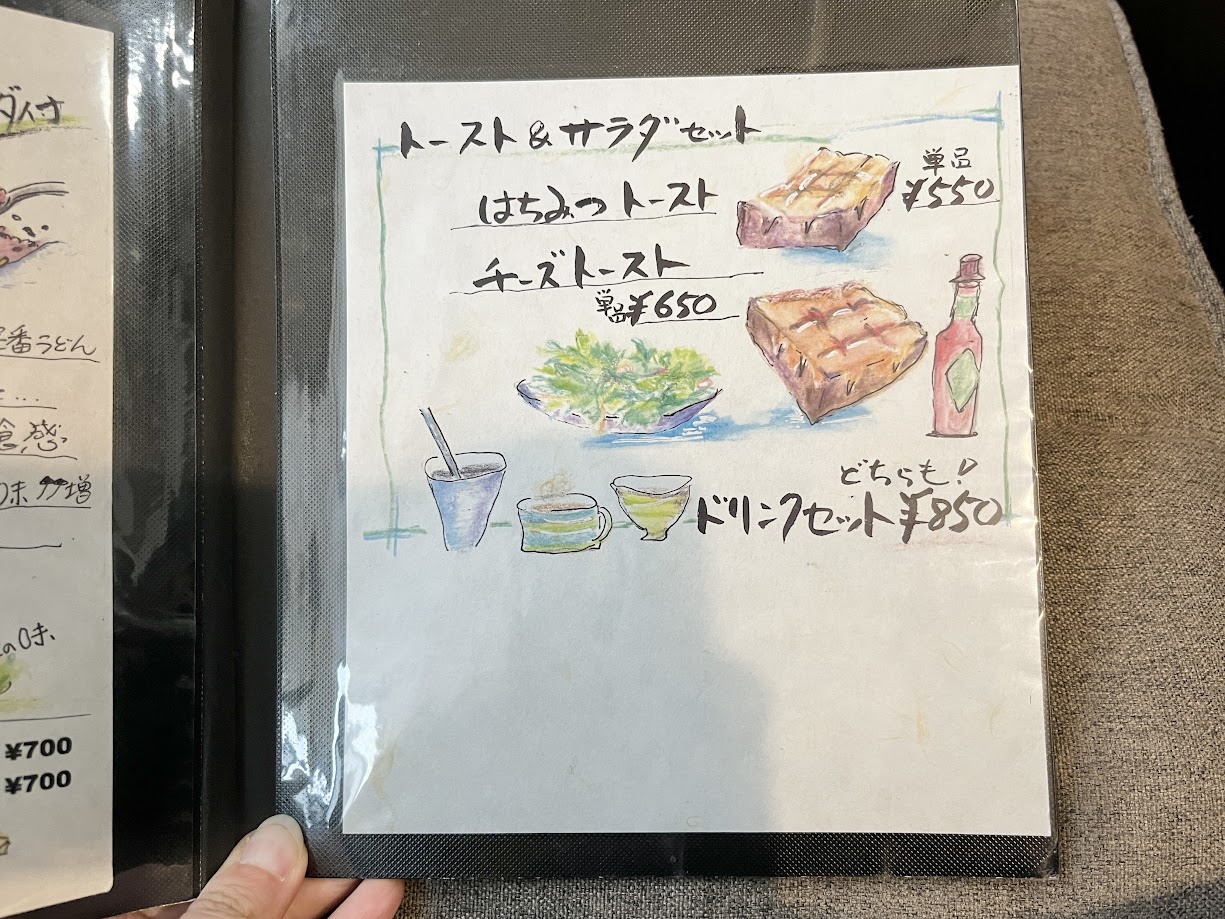 ダイ付
番うどん
食感
味 増
の味、
¥700
¥700
トースト&サラダセット
はちみつトースト
単品
¥550
チーズトースト
単品¥650
どちらも!
ドリンクセット¥850